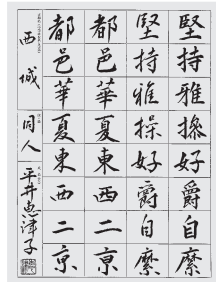 堅持雅操好爵自縻
堅持雅操好爵自縻
都邑華夏東西二京
都邑華夏東西二京
西城
同人
平井恵津子